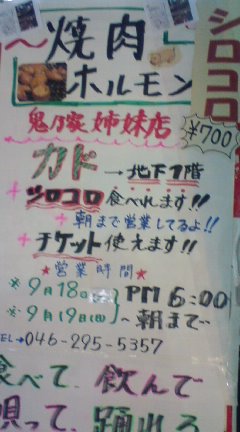 ～焼肉
ホルモン
シロコロ
¥700
鬼乃家 姉妹店
カド→地下1階
+シロコロ食べれます!!
+朝まで営業してるよ!!
+チケット使えます!!
★営業時間★
※9月18日(土)
※9月19日(日)
PM 6:00
～朝まで
TEL→046-295-5357
食べて、飲んで
唄って、踊れる